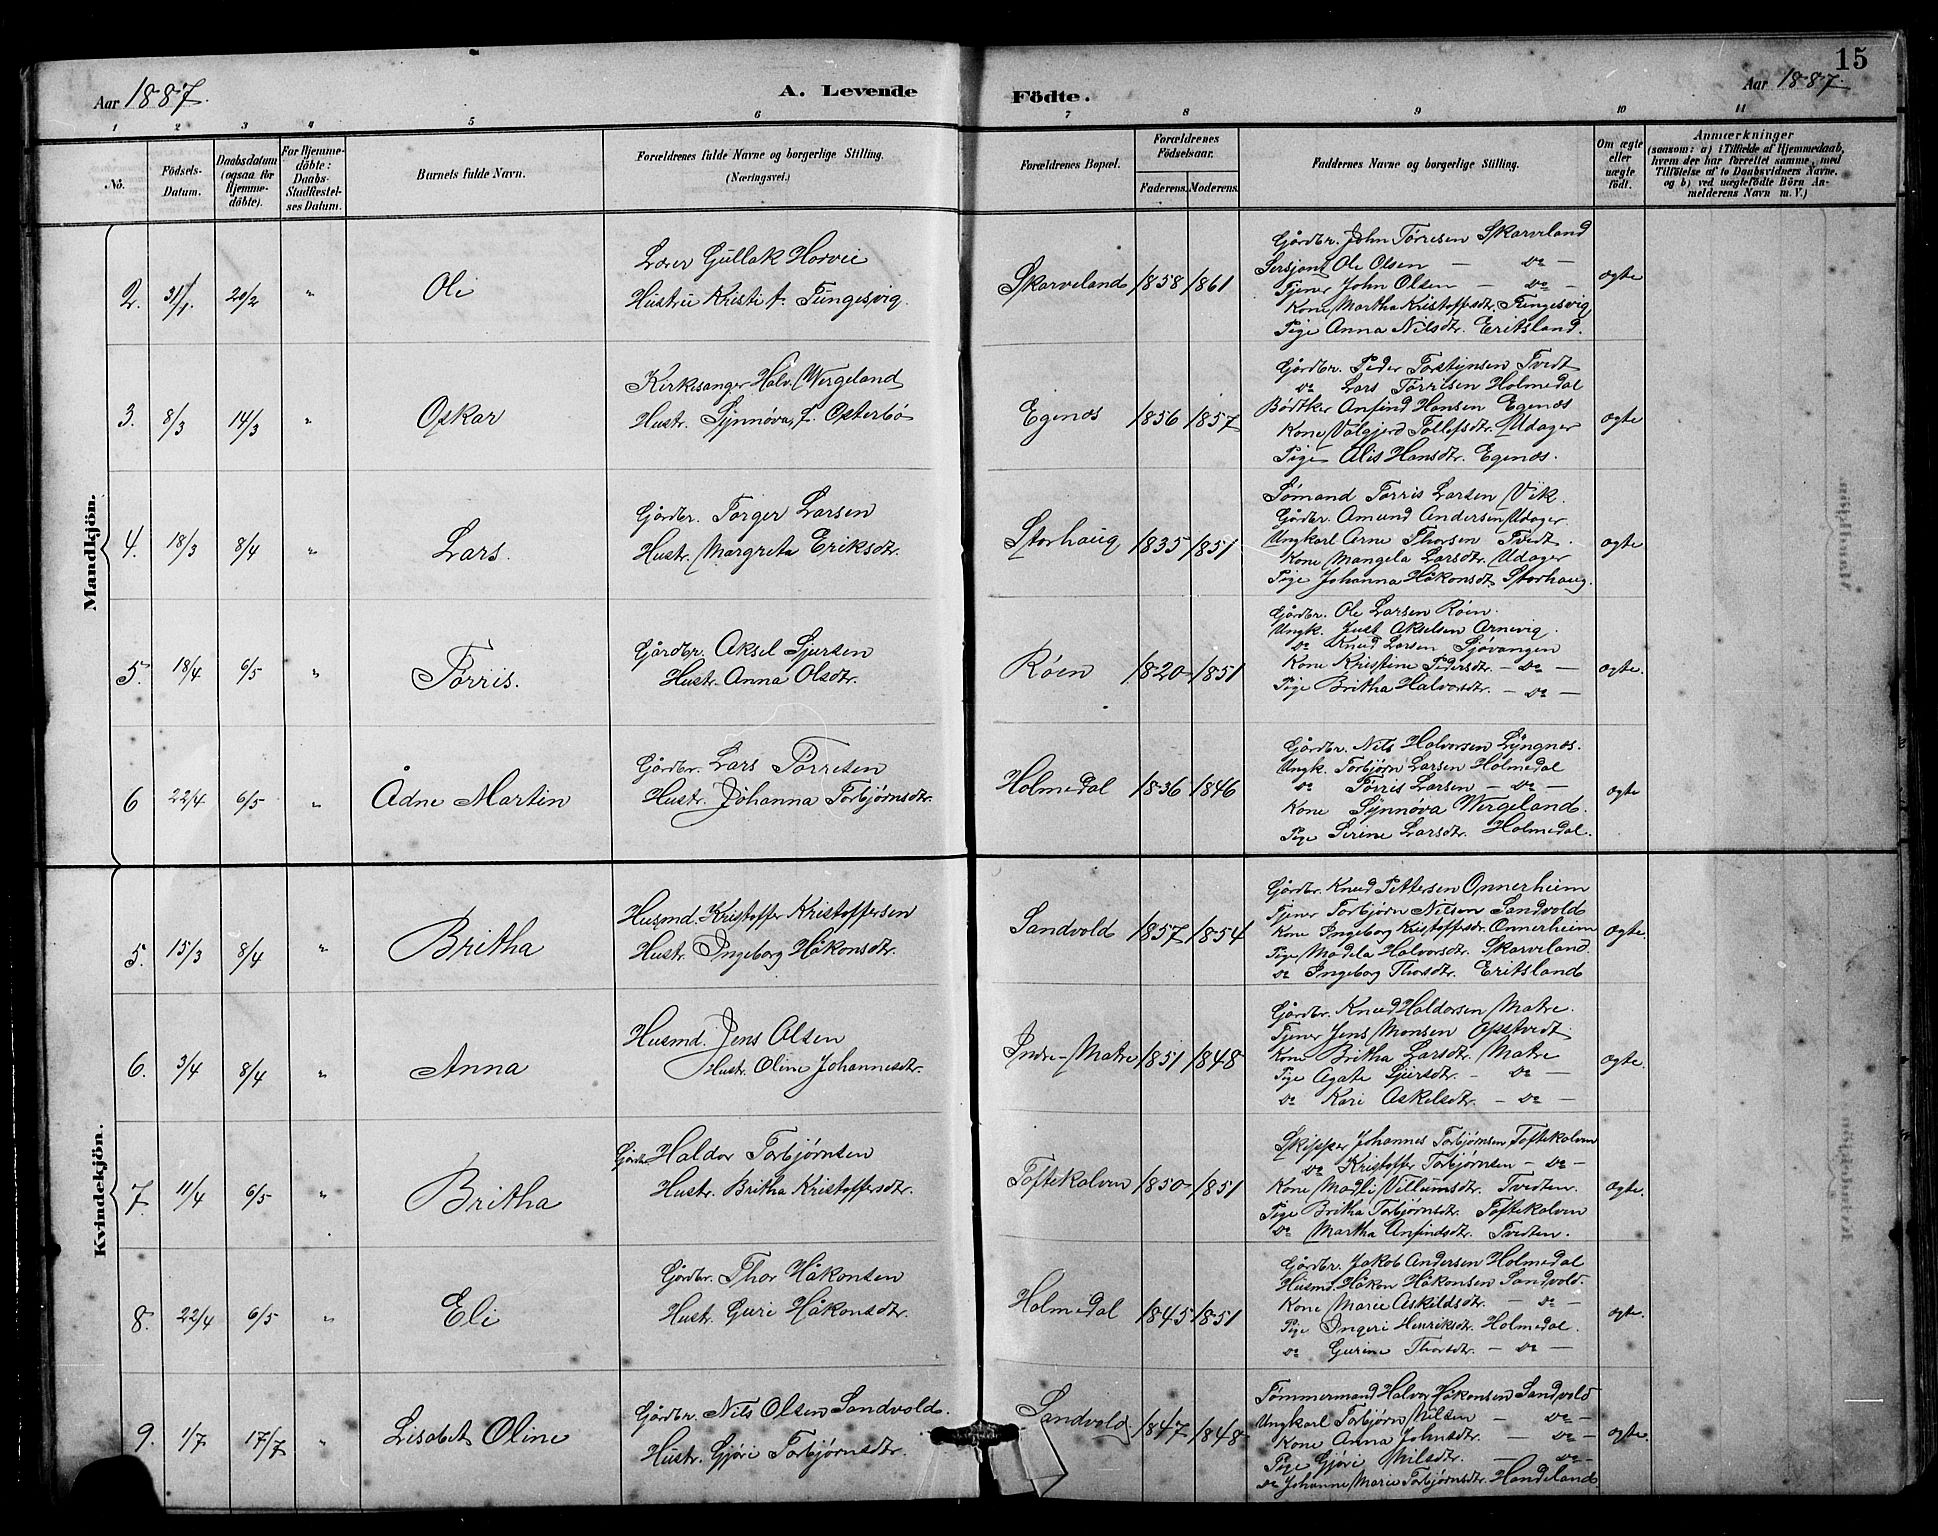 15
Aar 1887.
A. Levende
Födte.
Aar 1887.
1 2 3 4 5 6 7 8 9 10 11
No.
Födsels-Datum.
Daabsdatum (ogsaa for Hjemme-döbte).
For Hjemme-döbte: Daabs-Stadfæstel-ses Datum.
Barnets fulde Navn.
Forældrenes fulde Navne og borgerlige Stilling. (Næringsvei.)
Forældrenes Bopæl.
Forældrenes Födselsaar.
Faderens. Moderens.
Faddernes Navne og borgerlige Stilling.
Om ægte eller uægte födt.
Anmærkninger
(saasom: a) i Tilfælde af Hjemmedaab, hvem der har forrettet samme, med Tilföielse af to Daabsvidners Navne, og b) ved uægtefödte Börn An-melderens Navn m. V.)
Mandkjön.
2. 31/1 20/2 " Ole
Lærer Gullak Horvei
Hustru Kristi f. Fungesvig.
Skarveland 1858 1861
Gårdbr. John Tørresen Skarveland
Sersjant Ole Olsen — do —
Tjener John Olsen — do —
Kone Martha Kristoffsdtr. Fungesvig
Pige Anna Nilsdtr. Eritsland.
ægte
3. 8/3 14/3 " Oskar
Kirkesanger Halv. Wergeland
Hustr. Synnøva, f. Østerbø
Egenæs 1856 1857
Gårdbr. Peder Torstejnsen Tvedt
do Lars Tørrisen Holmedal
Bødtker Anfind Hansen Egenæs
Kone Valgjerd Tollefsdtr. Udager
Pige Alis Hansdtr. Egenæs.
ægte
4. 18/3 8/4 " Lars.
Gårdbr. Torger Larsen
Hustr. Margreta Eriksdtr.
Storhaug 1835 1851
Sømand Tørris Larsen Vik.
Gårdbr. Amund Andersen Udager
Ungkarl Arne Thorsen Tvedt.
Kone Mangela Larsdtr. Udager
Pige Johanna Håkonsdt. Storhaug.
ægte
5. 18/4 6/5 " Tørris.
Gårdbr. Aksel Sjursen
Hustr. Anna Olsdtr.
Røen 1820 1851
Gårdbr. Ole Larsen Røen.
Ungk. Just Akselsen Arnevig.
do Knud Larsen Sjøvangen
Kone Kristine Pedersdtr. — do —
Pige Britha Halvorsdtr. — do —
ægte.
6 22/4 6/5 " Ådne Martin
Gårdbr. Lars Tørresen
Hustr. Johanna Torbjørnsdtr.
Holmedal 1836 1846
Gårdbr. Nils Halvorsen Lyngnæs.
Ungk. Torbjørn Larsen Holmedal
do Tørris Larsen — do —
Kone Synnøva Wergeland.
Pige Serine Larsdtr. Holmedal.
ægte
Kvindekjön.
5. 15/3 8/4 " Britha
Husmd. Kristoffer Kristoffersen
Hustr. Ingeborg Håkonsdtr.
Sandvold 1857 1854
Gårdbr. Knud Pettersen Onnerheim
Tjener Torbjørn Nilsen Sandvold
Kone Ingeborg Kristoffsdr. Onnerheim
Pige Madela Halvorsdtr. Skarveland.
do Ingeborg Thorsdtr. Eritsland
ægte.
6. 3/4 8/4 " Anna
Husmd. Jens Olsen
Hustr. Oline Johannesdtr.
Indre-Matre 1851 1848
Gårdbr. Knud Haldorsen Matre.
Tjener Jens Monsen Opsitvedt
Kone Britha Larsdtr. Matre
Pige Agate Sjursdtr. — do —
do Kari Askelsdtr. — do —
ægte.
7. 11/4 6/5 " Britha
Gårdbr. Haldor Torbjørnsen
Hustr. Britha Kristoffersdtr.
Toftekalven 1850 1851
Skipper Johannes Torbjørnsen Toftekalven
do Kristoffer Torbjørnsen — do —
Kone Madli Villumsdtr. Tvedten.
Pige Britha Torbjørnsdtr. Toftekalven
do Martha Anfindsdtr. Tvedten.
ægte.
8. 22/4 6/5 " Eli
Gårdbr. Thor Håkonsen
Hustr. Guri Håkonsdtr.
Holmedal 1845 1851
Gårdbr. Jakob Andersen Holmedal
Husmd. Håkon Håkonsen Sandvold.
Kone Marie Askildsdtr. — do —
Pige Ingeri Henriksdtr. Holmedal.
do Gurine Thorsdtr. — do —
ægte.
9. 1/7 17/7 " Lisabet Oline
Gårdbr. Nils Olsen Sandvold.
Hustr. Gjøri Torbjørnsdtr.
Sandvold 1847 1848
Tømmermand Halvor Håkonsen Sandvold
Ungkarl Torbjørn Nilsen — do —
Kone Anna Johnsdtr. — do —
Pige Gjøri Nilsdtr. — do —
do Johanne Marie Torbjørnsdtr. Handeland.
ægte.